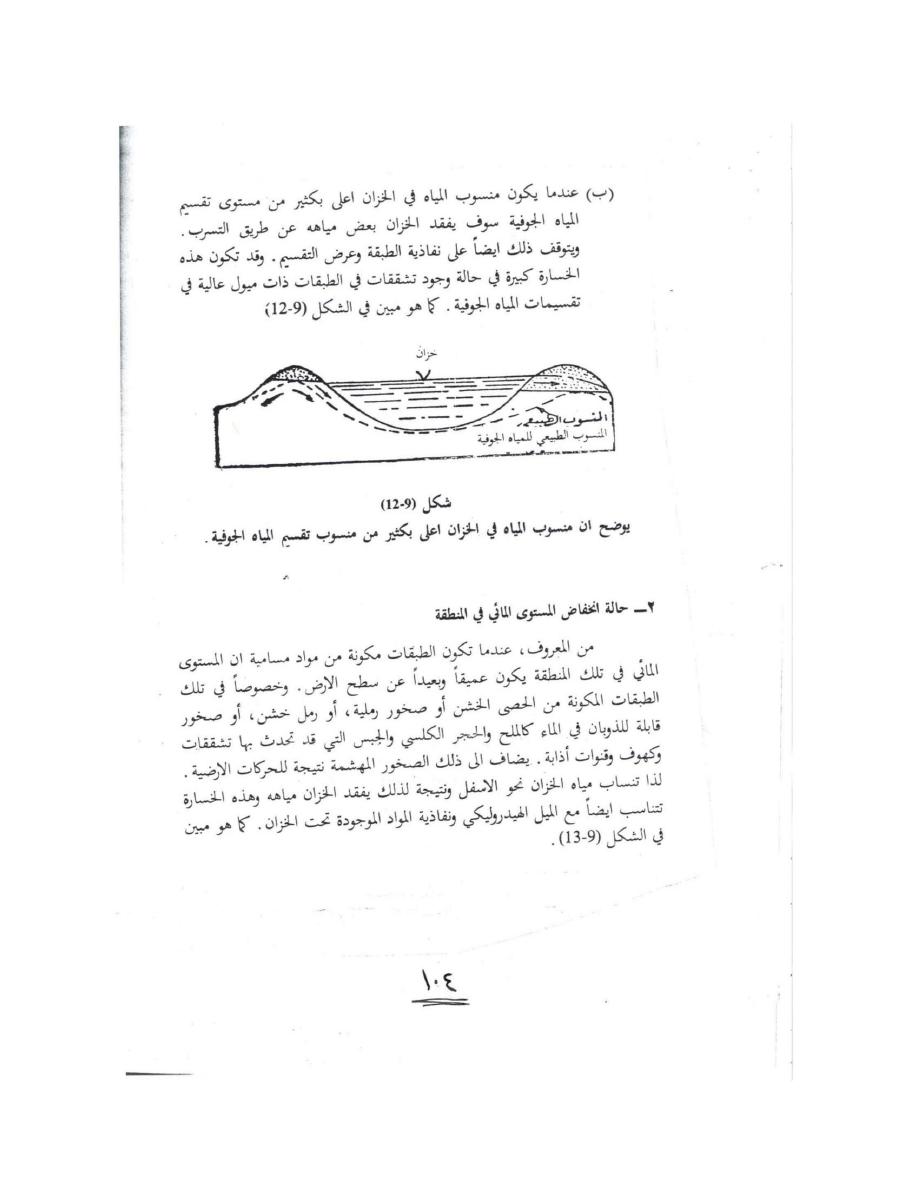 (ب) عندما يكون منسوب المياه في الخزان اعلى بكثير من مستوى تقسيم
المياه الجوفية سوف يفقد الخزان بعض مياهه عن طريق التسرب .
ويتوقف ذلك ايضاً على نفاذية الطبقة وعرض التقسيم . وقد تكون هذه
الخسارة كبيرة في حالة وجود تشققات في الطبقات ذات ميول عالية في
تقسيمات المياه الجوفية . كما هو مبين في الشكل (9-12)
خزان
المنسوب الطبيعي
المنسوب الطبيعي للمياه الجوفية
شكل (9-12)
يوضح ان منسوب المياه في الخزان اعلى بكثير من منسوب تقسيم المياه الجوفية .
٢ــ حالة انخفاض المستوى المائي في المنطقة
من المعروف، عندما تكون الطبقات مكونة من مواد مسامية ان المستوى
المائي في تلك المنطقة يكون عميقاً وبعيداً عن سطح الارض . وخصوصاً في تلك
الطبقات المكونة من الحصى الخشن أو صخور رملية، أو رمل خشن، أو صخور
قابلة للذوبان في الماء كالملح والحجر الكلسي والجبس التي قد تحدث بها تشققات
وكهوف وقنوات أذابة . يضاف الى ذلك الصخور المهشمة نتيجة للحركات الارضية .
لذا تنساب مياه الخزان نحو الاسفل ونتيجة لذلك يفقد الخزان مياهه وهذه الخسارة
تتناسب ايضاً مع الميل الهيدروليكي ونفاذية المواد الموجودة تحت الخزان . كما هو مبين
في الشكل (9-13) .
١٠٤